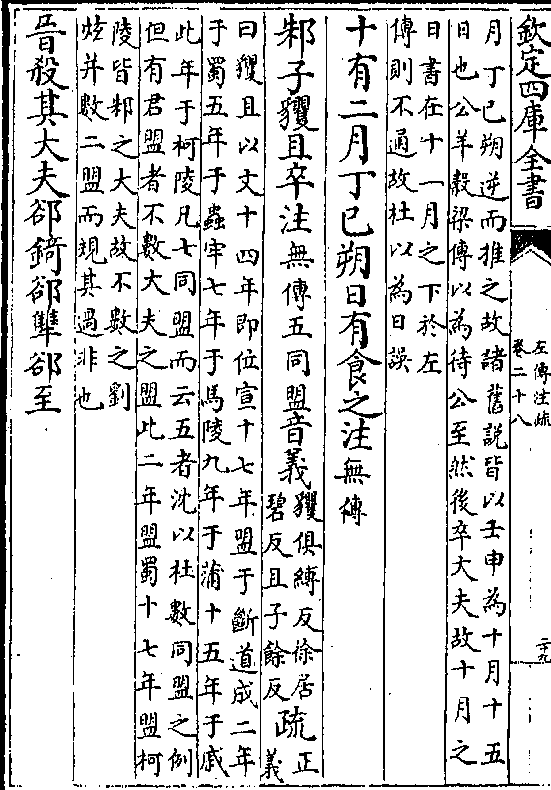 欽定四庫全書
左傳注疏
卷二十八
二十九
月丁巳朔逆而推之故諸舊說皆以壬申為十月十五
日也公羊穀梁傳以為待公至然後卒大夫故十月之
日書在十一月之下於左
傳則不通故杜以為日誤
十有二月丁巳朔日有食之注無傳
邾子貜且卒注無傳五同盟音義貜俱縛反徐居
碧反且子餘反疏正
義
曰貜且以文十四年即位宣十七年盟于斷道成二年
于蜀五年于蟲牢七年于馬陵九年于蒲十五年于戚
此年于柯陵凡七同盟而云五者沈以杜數同盟之例
但有君盟者不數大夫之盟此二年盟蜀十七年盟柯
陵皆邾之大夫故不數之劉
炫并數二盟而規其過非也
晉殺其大夫郤錡郤犨郤至